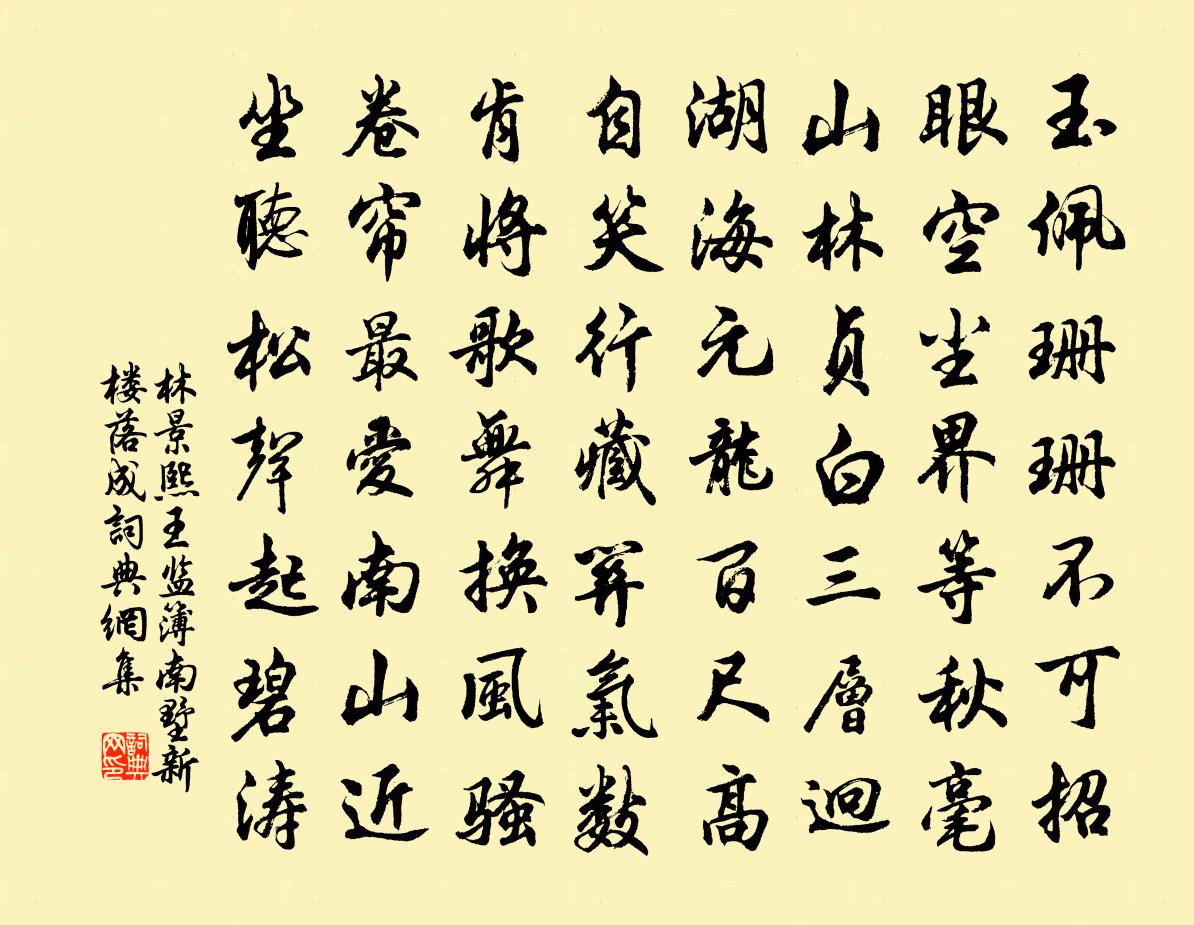 玉佩珊珊不可招
眼空尘界等秋毫
山林贞白三層迥
湖海元龍百尺高
自笑行藏関氣數
肯將歌舞換風骚
卷帘最愛南山近
坐聽松聲起碧涛
林景熙王监簿南墅新
楼落成詞典網集
詞典
网印